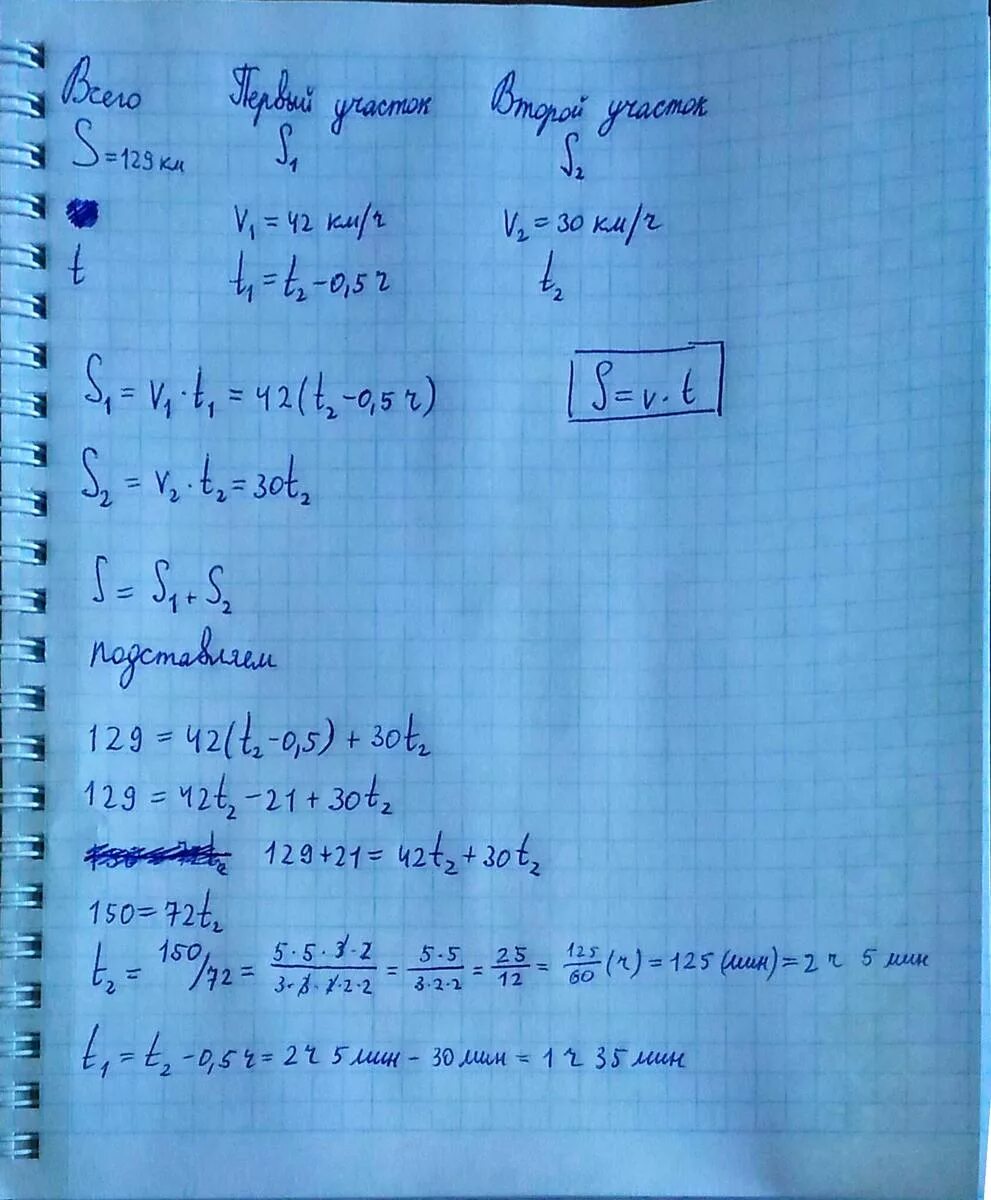 Всего Первый участок Второй участок
S=129 км S₁ S₂
V₁ = 42 км/ч V₂ = 30 км/ч
t t₁ = t₂ - 0,5 ч t₂
S₁ = V₁ · t₁ = 42(t₂ - 0,5 ч) S = v · t
S₂ = V₂ · t₂ = 30t₂
S = S₁ + S₂
подставляем
129 = 42(t₂ - 0,5) + 30t₂
129 = 42t₂ - 21 + 30t₂
129 + 21 = 42t₂ + 30t₂
150 = 72t₂
t₂ = 150/72 = 5·5·3·2/3·3·2·2·2 = 5·5/3·2·2 = 25/12 = 125/60 (ч) = 125 (мин) = 2 ч 5 мин
t₁ = t₂ - 0,5 ч = 2 ч 5 мин - 30 мин = 1 ч 35 мин